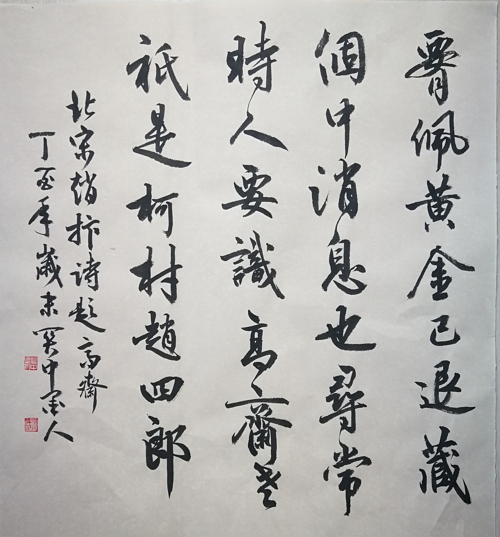 腰佩黃金已退藏
個中消息也尋常
時人要識高齋老
祇是柯村趙四郎
北宋趙抃詩題高齋
丁酉年歲末中墨人